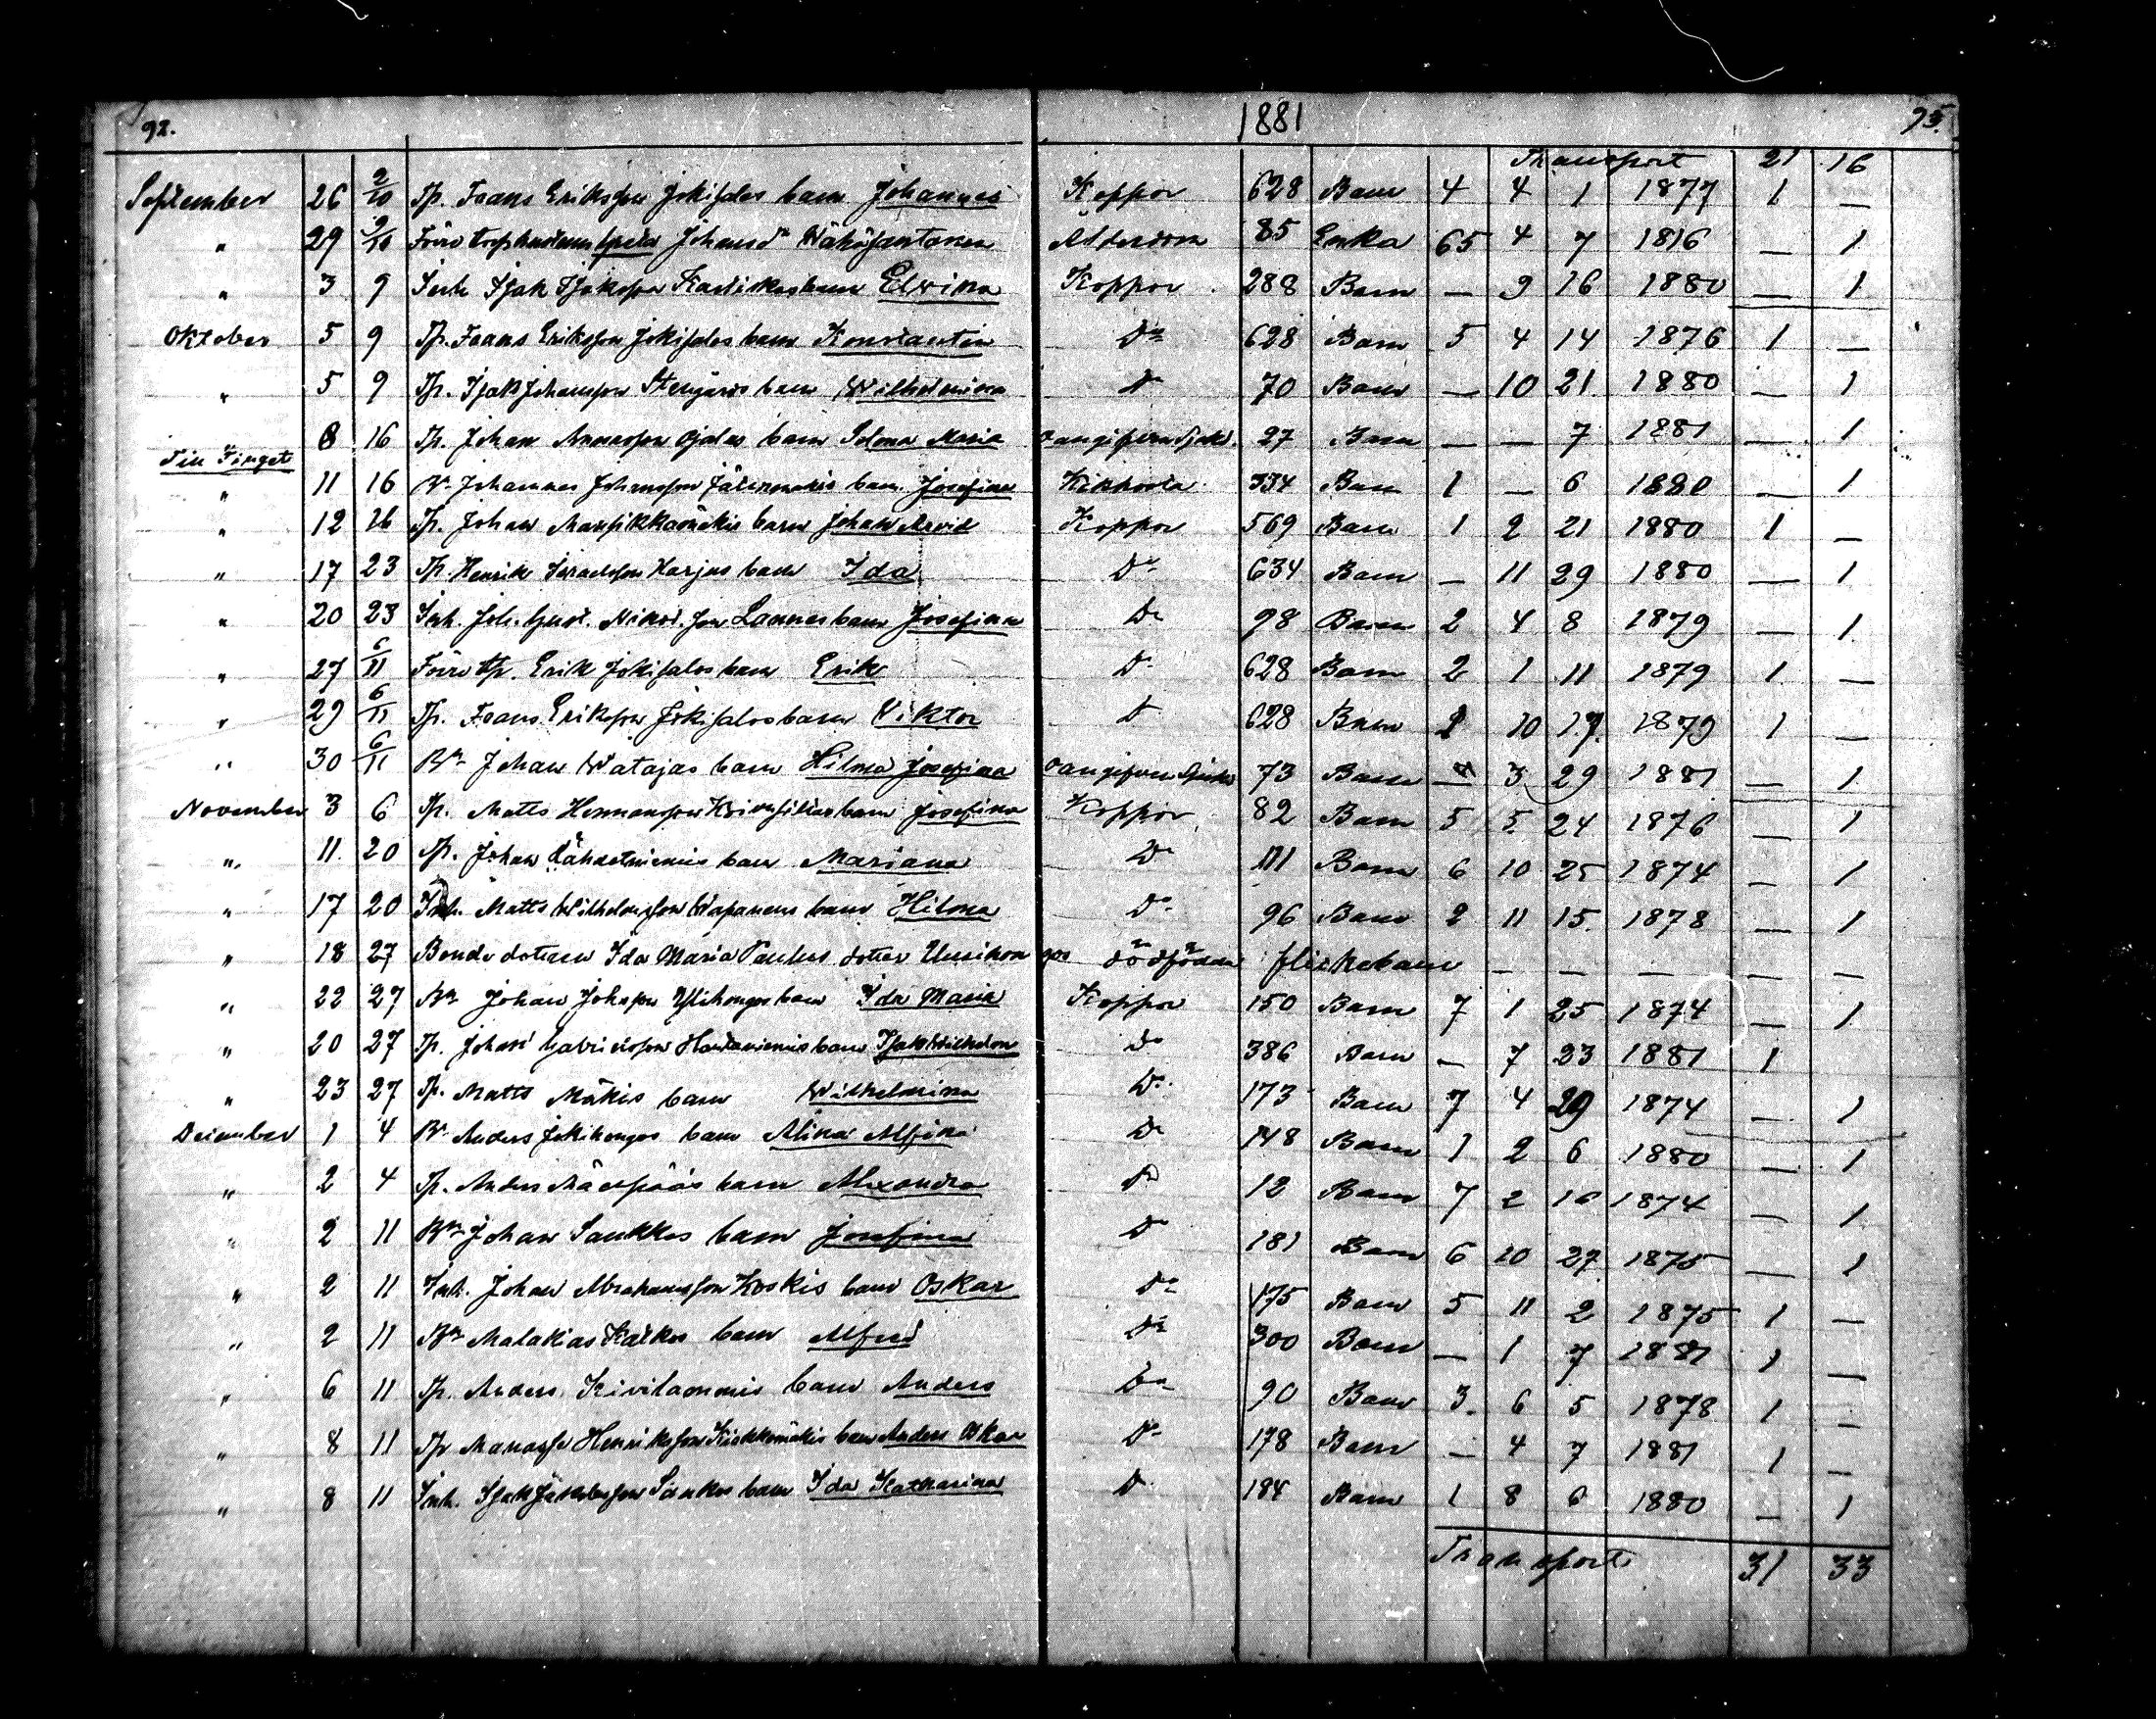 92. 1881 93.
Transport 21 16
September 26 2/10 Tp. Frans Eriksson Jokisalos barn Johannes Koppor 628 Barn 4 4 1 1877 1 —
" 29 2/10 Förre Johansdr Wähäsantanen Ålderdom 85 Enka 65 4 7 1816 — 1
" 3 9 Inh. Isak Isaksson barn Elvina Koppor 288 Barn — 9 16 1880 — 1
Oktober 5 9 Tp. Frans Eriksson Jokisalos barn Konstantin Do 628 Barn 5 4 14 1876 1 —
" 5 9 Tp. Isak Johansson barn Wilhelmina Do 70 Barn — 10 21 1880 — 1
8 16 Tp. Johan Ojalas barn Selma Maria oangifven sjukd. 27 Barn — — 7 1881 — 1
Till Tinget
" 11 16 Bn Johannes Johansson barn Josefina Kikhosta 334 Barn 1 — 6 1880 — 1
" 12 16 Tp. Johan Mansikkamäkis barn Johan Arvid Koppor 569 Barn 1 2 21 1880 1 —
" 17 23 Tp. Henrik Israelsson Harjus barn Ida Do 634 Barn — 11 29 1880 — 1
" 20 23 Inh. Joh. Gust. Lannes barn Josefina Do 98 Barn 2 4 8 1879 — 1
" 27 6/11 Förre tp. Erik Jokisalos barn Erik Do 628 Barn 2 1 11 1879 1 —
" 29 6/11 Tp. Frans Eriksson Jokisalos barn Viktor Do 628 Barn 1 10 17 1879 1 —
" 30 6/11 Bn Johan Watajas barn Hilma Josefina oangifven sjukd 73 Barn — 3 29 1881 — 1
November 3 6 Tp. Matts Hermansson barn Josefina Koppor 82 Barn 5 5 24 1876 — 1
" 11 20 Tp. Johan Lähdetniemis barn Mariana Do 111 Barn 6 10 25 1874 — 1
" 17 20 Inh. Matts Wilhelmsson barn Hilma Do 96 Barn 2 11 15 1878 — 1
" 18 27 Bonde dottern Ida Maria Paulus dotter dödfödda flickebarn — — — — — —
" 22 27 Bn Johan Johsson Ylihongos barn Ida Maria Koppor 150 Barn 7 1 25 1874 — 1
" 20 27 Tp. Johan Gabrielsson barn Isak Wilhelm Do 386 Barn — 7 23 1881 1
" 23 27 Tp. Matts Mäkis barn Wilhelmina Do 173 Barn 7 4 29 1874 — 1
December 1 4 Bn Anders Jokihongos barn Alina Alfina Do 148 Barn 1 2 6 1880 — 1
" 2 4 Tp. Anders Mäenpääs barn Alexandra Do 12 Barn 7 2 16 1874 — 1
" 2 11 Bn Johan Saukkos barn Josefina Do 181 Barn 6 10 27 1875 — 1
" 2 11 Inh. Johan Abrahamsson Koskis barn Oskar Do 175 Barn 5 11 2 1875 1 —
" 2 11 Bn Malakias barn Alfred Do 300 Barn — 1 7 1881 1 —
" 6 11 Tp. Anders Kivilammis barn Anders Do 90 Barn 3 6 5 1878 1 —
" 8 11 Tp Manasse Henriksson barn Anders Oskar Do 178 Barn — 4 7 1881 1 —
" 8 11 Inh. Isak Jakobsson Saukkos barn Ida Katharina Do 184 Barn 1 8 6 1880 — 1
Transport 31 33